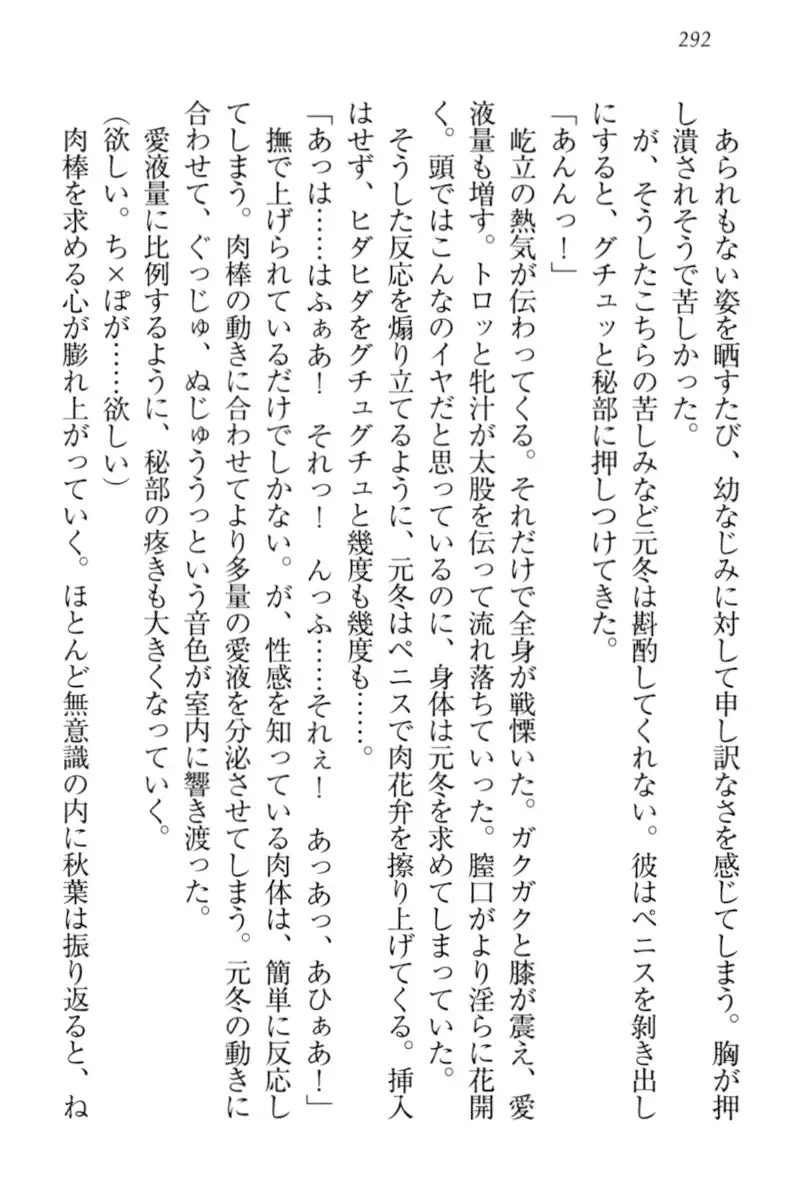 292
あられもない姿を晒すたび、幼なじみに対して申し訳なさを感じてしまう。胸が押
し潰されそうで苦しかった。
が、そうしたこちらの苦しみなど元冬は斟酌してくれない。彼はペニスを剝き出し
にすると、グチュッと秘部に押しつけてきた。
「あんんっ！」
屹立の熱気が伝わってくる。それだけで全身が戦慄いた。ガクガクと膝が震え、愛
液量も増す。トロッと牝汁が太股を伝って流れ落ちていった。膣口がより淫らに花開
く。頭ではこんなのイヤだと思っているのに、身体は元冬を求めてしまっていた。
そうした反応を煽り立てるように、元冬はペニスで肉花弁を擦り上げてくる。挿入
はせず、ヒダヒダをグチュグチュと幾度も幾度も……。
「あっは……はふぁあ！　それっ！　んっふ……それぇ！　あっあっ、あひぁあ！」
撫で上げられているだけでしかない。が、性感を知っている肉体は、簡単に反応し
てしまう。肉棒の動きに合わせてより多量の愛液を分泌させてしまう。元冬の動きに
合わせて、ぐっじゅ、ぬじゅううっという音色が室内に響き渡った。
愛液量に比例するように、秘部の疼きも大きくなっていく。
（欲しい。ち×ぽが……欲しい）
肉棒を求める心が膨れ上がっていく。ほとんど無意識の内に秋葉は振り返ると、ね